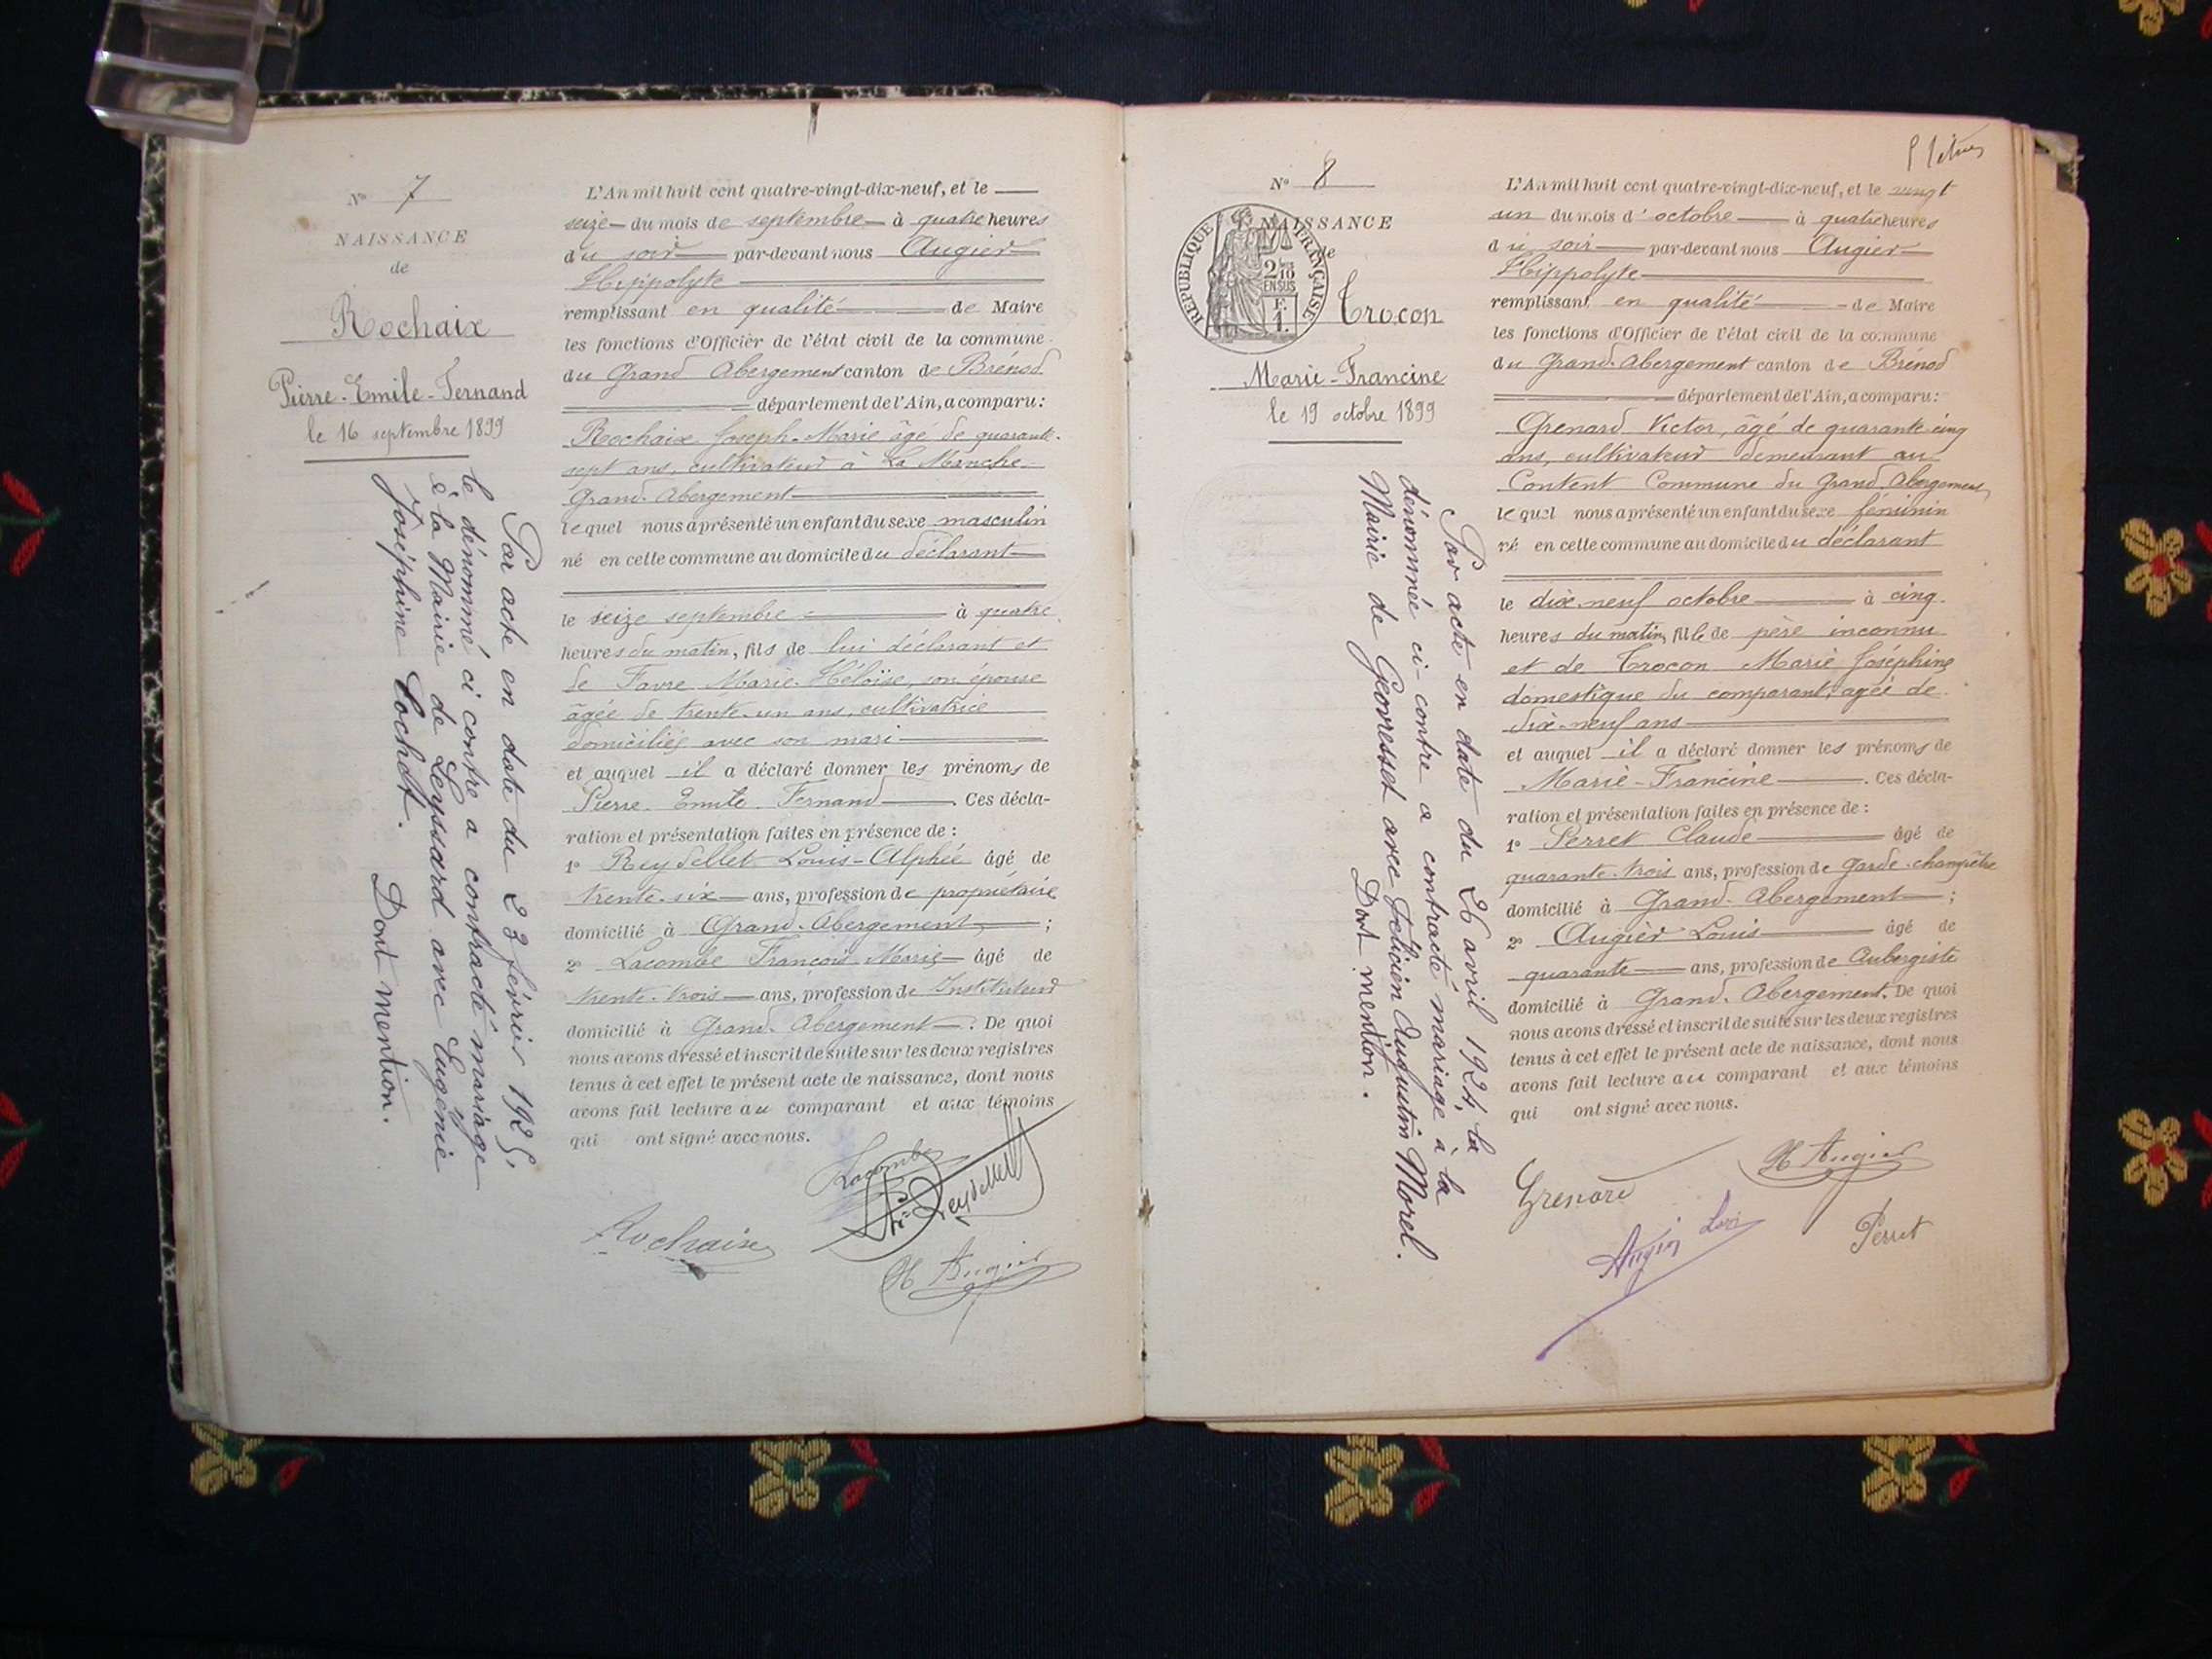 N° 7
NAISSANCE
de
Rochaix
Pierre-Emile-Fernand
le 16 septembre 1899
Par acte en date du 23 février 1925,
le dénommé ci contre a contracté mariage
à la Mairie de Leyssard avec Eugénie
Joséphine Cochet.
Dont mention.
L'An mil huit cent quatre-vingt-dix-neuf, et le
seize du mois de septembre à quatre heures
du soir par-devant nous Augier
Hippolyte
remplissant en qualité de Maire
les fonctions d'Officier de l'état civil de la commune
du Grand Abergement canton de Brénod
département de l'Ain, a comparu :
Rochaix Joseph-Marie âgé de quarante-
sept ans, cultivateur à La Manche
Grand-Abergement
lequel nous a présenté un enfant du sexe masculin
né en cette commune au domicile du déclarant
le seize septembre à quatre
heures du matin, fils de lui déclarant et
de Favre Marie-Héloïse, son épouse
âgée de trente-un ans, cultivatrice
domiciliée avec son mari
et auquel il a déclaré donner les prénoms de
Pierre-Emile-Fernand. Ces décla-
ration et présentation faites en présence de :
1° Reydellet Louis-Alphée âgé de
trente-six ans, profession de propriétaire
domicilié à Grand-Abergement ;
2° Lacombe François Marie âgé de
trente-trois ans, profession de Instituteur
domicilié à Grand-Abergement. De quoi
nous avons dressé et inscrit de suite sur les deux registres
tenus à cet effet le présent acte de naissance, dont nous
avons fait lecture au comparant et aux témoins
qui ont signé avec nous.
Lacombe
Reydellet
Rochaix
H Augier
N° 8
NAISSANCE
de
RÉPUBLIQUE FRANÇAISE
2/10
EN SUS
F.
1.
Trocon
Marie-Francine
le 19 octobre 1899
Par acte en date du 26 avril 1924, la
dénommée ci-contre a contracté mariage à la
Mairie de Geovresset avec Félicien Augustin Morel.
Dont mention.
L'An mil huit cent quatre-vingt-dix-neuf, et le vingt
un du mois d'octobre à quatre heures
du soir par-devant nous Augier
Hippolyte
remplissant en qualité de Maire
les fonctions d'Officier de l'état civil de la commune
du Grand-Abergement canton de Brénod
département de l'Ain, a comparu :
Grenard Victor, âgé de quarante-cinq
ans, cultivateur demeurant au
Content Commune du Grand Abergement
lequel nous a présenté un enfant du sexe féminin
né en cette commune au domicile du déclarant
le dix-neuf octobre à cinq
heures du matin, fille de père inconnu
et de Trocon Marie Joséphine
domestique du comparant, agée de
dix-neuf ans
et auquel il a déclaré donner les prénoms de
Marie-Francine. Ces décla-
ration et présentation faites en présence de :
1° Perret Claude âgé de
quarante-trois ans, profession de garde-champêtre
domicilié à Grand-Abergement ;
2° Augier Louis âgé de
quarante ans, profession de Aubergiste
domicilié à Grand-Abergement. De quoi
nous avons dressé et inscrit de suite sur les deux registres
tenus à cet effet le présent acte de naissance, dont nous
avons fait lecture au comparant et aux témoins
qui ont signé avec nous.
H Augier
Grenard
Augier Louis
Perret